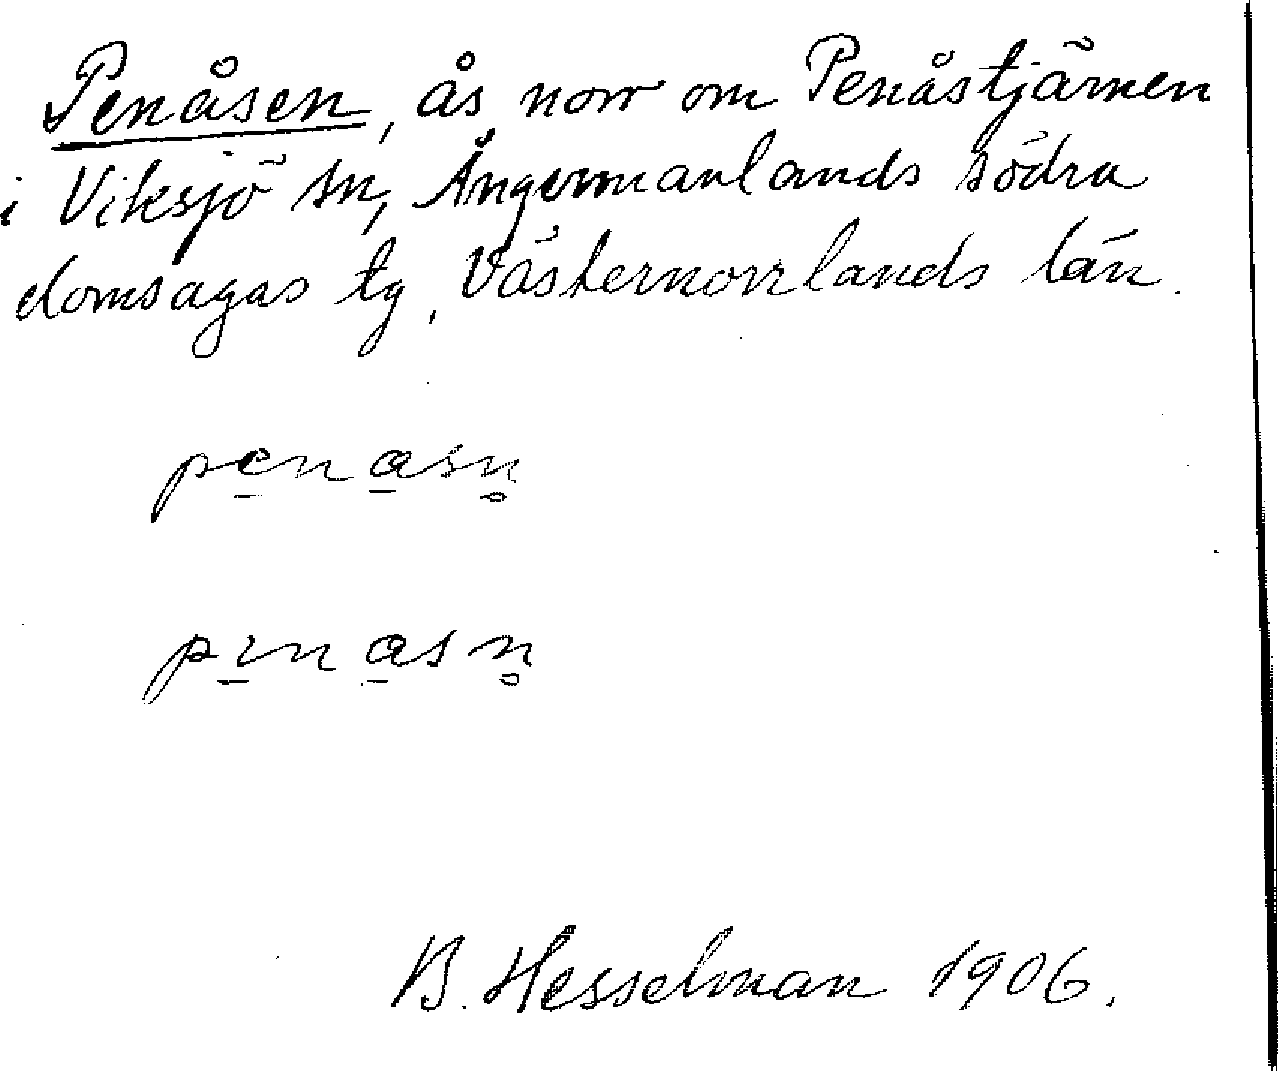 Penåsen, ås norr om Penåstjärnen
i Viksjö sn, Ångermanlands södra
domsagas tg, Västernorrlands län.
pe̲na̲sn̥
pı̲na̲sn̥
B. Hesselman 1906.